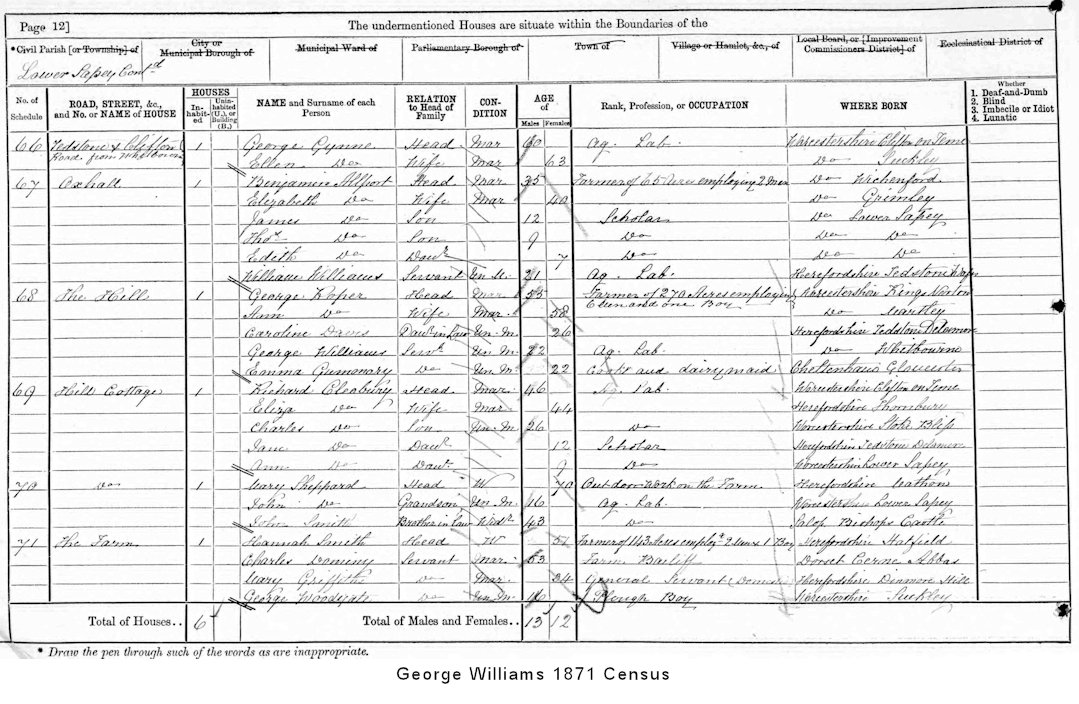 Page 12]
The undermentioned Houses are situate within the Boundaries of the
*Civil Parish [or Township] of
City or Municipal Borough of
Municipal Ward of
Parliamentary Borough of
Town of
Village or Hamlet, &c., of
Local Board, or [Improvement Commissioners District] of
Ecclesiastical District of
Lower Sapey Contd
No. of Schedule
ROAD, STREET, &c., and No. or NAME of HOUSE
HOUSES
In-habit-ed
Unin-habited (U.), or Building (B.)
NAME and Surname of each Person
RELATION to Head of Family
CON-DITION
AGE of
Males
Females
Rank, Profession, or OCCUPATION
WHERE BORN
Whether
1. Deaf-and-Dumb
2. Blind
3. Imbecile or Idiot
4. Lunatic
66 Tedstone & Clifton Road from Whitbourne 1 George Head Mar 60 Ag. Lab. Worcestershire Clifton on Teme
Ellen Do Wife Mar 63 Do Suckley
67 Oxhall 1 Benjamin Head Mar 35 Farmer of 65 Acres employing 2 Men Do Wichenford
Elizabeth Do Wife Mar 40 Do Grimley
James Do Son 12 Scholar Do Lower Sapey
Thos Do Son 9 Do Do Do
Edith Do Daur 7 Do Do Do
William Williams Servant Un M. 21 Ag. Lab. Herefordshire Tedstone
68 The Hill 1 George Roper Head Mar 55 Farmer of 270 Acres employing and one Boy Worcestershire Kings Norton
Ann Do Wife Mar 58 Do Martley
Caroline Daur in Law Un. M. 26 Herefordshire Tedstone Delamere
George Williams Servt Un M. 22 Ag. Lab. Do Whitbourne
Emma Do Un. M. 22 Cook and dairymaid Cheltenham Gloucester
69 Hill Cottage 1 Richard Head Mar 46 Ag. Lab. Worcestershire Clifton on Teme
Eliza Do Wife Mar 44 Herefordshire Thornbury
Charles Do Son Un. M. 26 Do Worcestershire Stoke Bliss
Jane Do Daur 12 Scholar Herefordshire Tedstone Delamere
Ann Do Daur 9 Do Worcestershire Lower Sapey
70 Do 1 Mary Sheppard Head W 70 Out door Work on the Farm Herefordshire
John Do Grandson Un. M. 16 Ag. Lab. Worcestershire Lower Sapey
John Smith Brother in Law Widr 43 Do Salop Bishops Castle
71 The Farm 1 Hannah Smith Head W 51 Farmer of 143 Acres employg 2 Men & 1 Boy Herefordshire Hatfield
Charles Servant Mar 53 Farm Bailiff Dorset Cerne Abbas
Mary Griffiths Do Mar 24 General Servant (Domestic) Herefordshire Dinmore Hill
George Woodgate Do Un. M. 16 Plough Boy Worcestershire Suckley
Total of Houses.. 6 Total of Males and Females.. 13 12
* Draw the pen through such of the words as are inappropriate.
George Williams 1871 Census